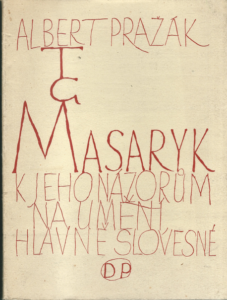 ALBERT PRAŽÁK
T
G
MASARYK
K JEHO NÁZORŮM
NA UMĚNÍ
HLAVNĚ SLOVESNÉ
DP